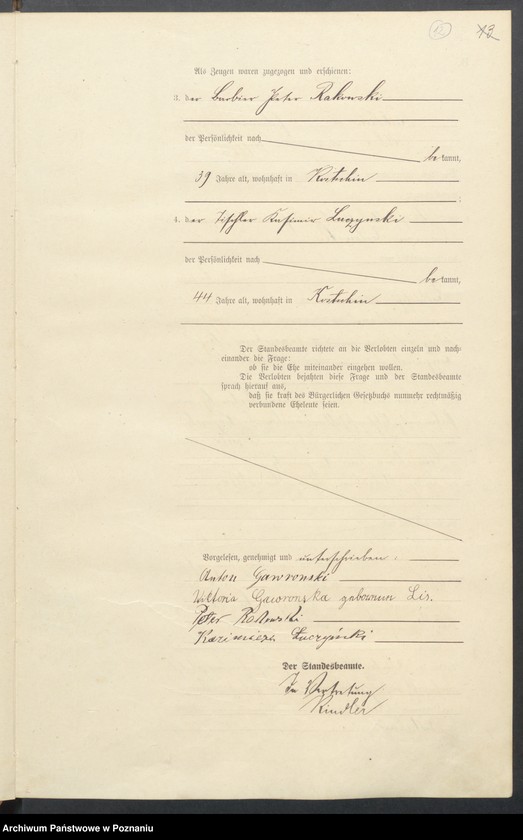 12
13
Als Zeugen waren zugezogen und erschienen:
3. der Barbier Peter Rakowski
der Persönlichkeit nach
bekannt,
39 Jahre alt, wohnhaft in Kostschin
;
4. der Tischler Kasimir Luczynski
der Persönlichkeit nach
bekannt,
44 Jahre alt, wohnhaft in Kostschin
Der Standesbeamte richtete an die Verlobten einzeln und nach-
einander die Frage:
ob sie die Ehe miteinander eingehen wollen.
Die Verlobten bejahten diese Frage und der Standesbeamte
sprach hierauf aus,
daß sie kraft des Bürgerlichen Gesetzbuchs nunmehr rechtmäßig
verbundene Eheleute seien.
Vorgelesen, genehmigt und unterschrieben:
Anton Gawronski
Wiktoria Gawronska geborenun Lis.
Peter Rakowski
Kazimierz Łuczyński
Der Standesbeamte.
In Vertretung
Kindler
Archiwum Państwowe w Poznaniu
szukajwarchiwach.gov.pl